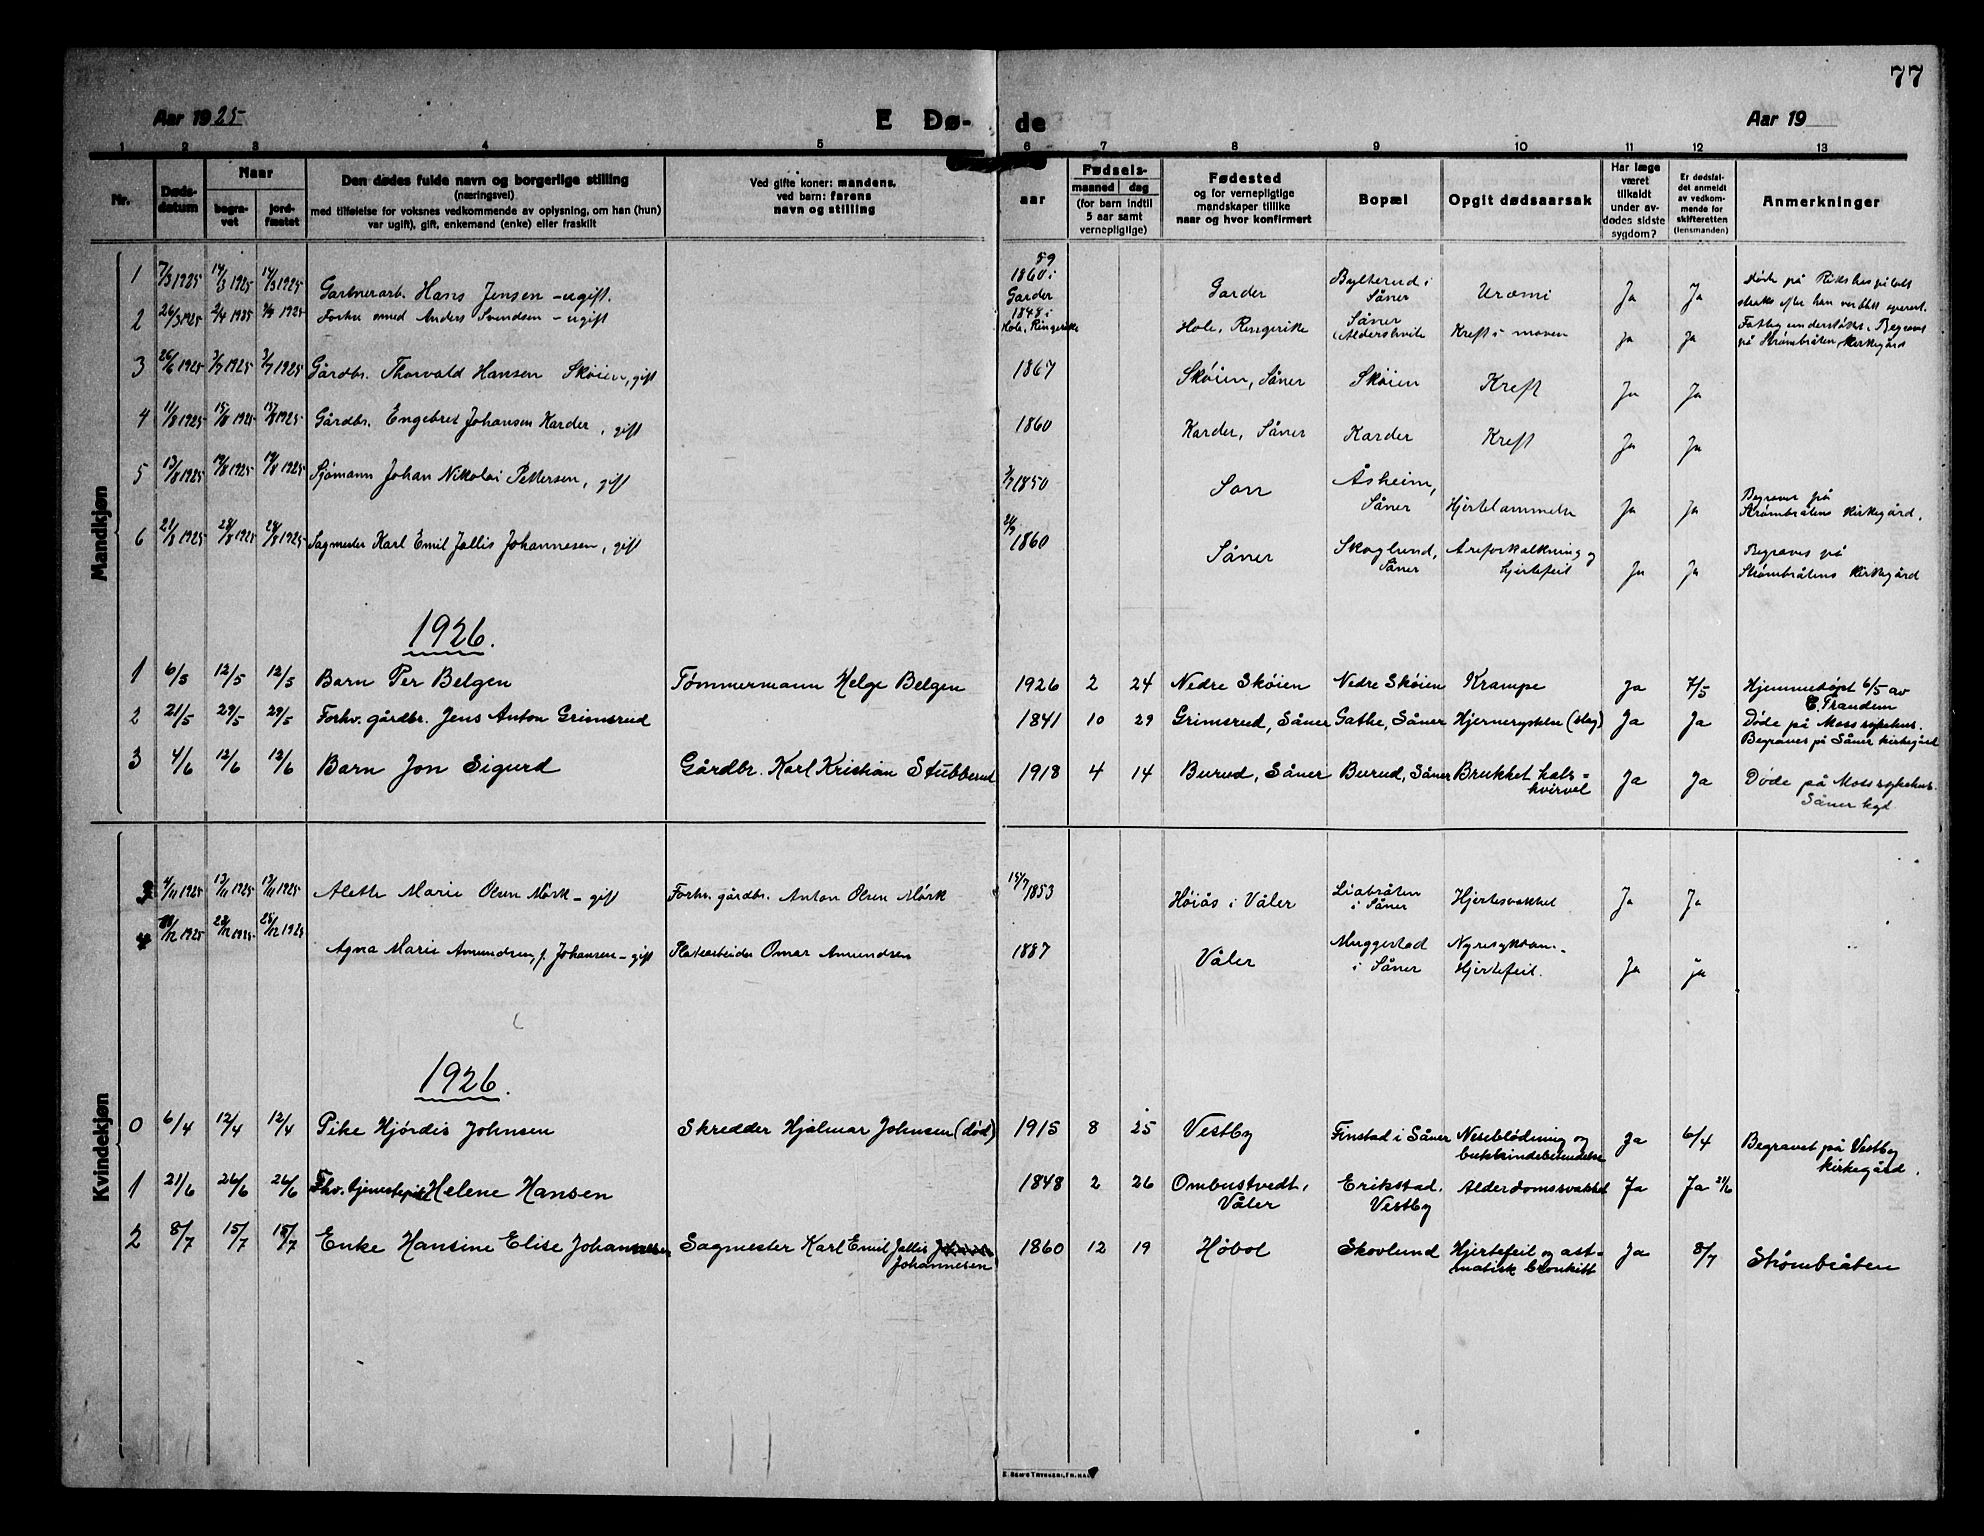 77
Aar 1925
E Dø-
de
Aar 19
1 2 3 4 5 6 7 8 9 10 11 12 13
Nr.
Døds-
datum
Naar
begra-
vet
jord-
fæstet
Den dødes fulde navn og borgerlige stilling
(næringsvei)
med tilføielse for voksnes vedkommende av oplysning, om han (hun)
var ugift, gift, enkemand (enke) eller fraskilt
Ved gifte koner: mandens,
ved barn: farens
navn og stilling
aar
Fødsels-
maaned dag
(for barn indtil
5 aar samt
vernepligtige)
Fødested
og for vernepligtige
mandskaper tillike
naar og hvor konfirmert
Bopæl
Opgit dødsaarsak
Har læge
været
tilkaldt
under av-
dødes sidste
sygdom?
Er dødsfal-
det anmeldt
av vedkom-
mende for
skifteretten
(lensmanden)
Anmerkninger
Mandkjøn
1 7/3 1925 14/3 1925 14/3 1925 Gartnerarb. Hans Jensen - ugift. 59 1860 i Garder Garder Bylterud i Såner Uræmi Ja Ja Døde på Rikshospitalet straks efter han var blitt operert.
2 26/3 1925 2/4 1925 2/4 1925 Forhv. smed Anders Svendsen - ugift 1848 i Hole, Ringerike Hole, Ringerike Såner Aldershvile Kreft i maven Ja Ja Fattigunderstøttet. Begravet på Strømbråten kirkegård
3 26/6 1925 3/7 1925 3/7 1925 Gårdbr. Thorvald Hansen Skøien, gift 1867 Skøien, Såner Skøien Kreft Ja Ja
4 11/8 1925 15/8 1925 15/8 1925 Gårdbr. Engebret Johansen Karder, gift 1860 Karder, Såner Karder Kreft Ja Ja
5 13/8 1925 19/8 1925 19/8 1925 Sjømann Johan Nikolai Pettersen, gift 3/7 1850 Son Åsheim, Såner Hjertelammelse Ja Ja Begraves på Strømbråtens kirkegård.
6 21/8 1925 28/8 1925 28/8 1925 Sagmester Karl Emil Jallis Johannesen, gift 24/9 1860 Såner Skoglund, Såner Åreforkalkning og hjertefeil Ja Ja Begraves på Strømbråtens kirkegård
1926.
1 6/5 12/5 12/5 Barn Per Belgen Tømmermann Helge Belgen 1926 2 24 Nedre Skøien Nedre Skøien Krampe Ja 7/5 Hjemmedøpt 6/5 av C. Trandem
2 21/5 29/5 29/5 Forhv. gårdbr. Jens Anton Grimsrud 1841 10 29 Grimsrud, Såner Gathe, Såner Hjernerystelse (slag) Ja Ja Døde på Moss sykehus. Begraves på Såner kirkegård
3 4/6 12/6 12/6 Barn Jon Sigurd Gårdbr. Karl Kristian Stubberud 1918 4 14 Burud, Såner Burud, Såner Brukket hals-
hvirvel Ja Ja Døde på Moss sykehus. Såner kgd.
Kvindekjøn
3 4/11 1925 12/11 1925 12/11 1925 Alette Marie Olsen Mørk - gift Forhv. gårdbr. Anton Olsen Mørk 15/7 1853 Høiås i Våler Liabråten i Såner Hjertesvakhet Ja Ja
4 18/12 1925 28/12 1925 28/12 1925 Agna Marie Amundsen, f. Johansen - gift Platearbeider Omar Amundsen 1887 Våler Muggestad i Såner Nyresykdom - Hjertefeil. Ja ja
1926.
0 6/4 12/4 12/4 Pike Hjørdis Johnsen Skredder Hjalmar Johnsen (død) 1915 8 25 Vestby Finstad i Såner Neseblødning og bukhindebetendelse Ja 6/4 Begravet på Vestby kirkegård.
1 21/6 26/6 26/6 Fhv. tjenestepike Helene Hansen 1848 2 26 Ombustvedt, Våler Erikstad, Vestby Alderdomssvakhet Ja Ja 21/6
2 8/7 15/7 15/7 Enke Hansine Elise Johannesen Sagmester Karl Emil Jallis Johannesen 1860 12 19 Høbøl Skovlund Hjertefeil og ast-
matisk bronkitt Ja 8/7 Strømbråten